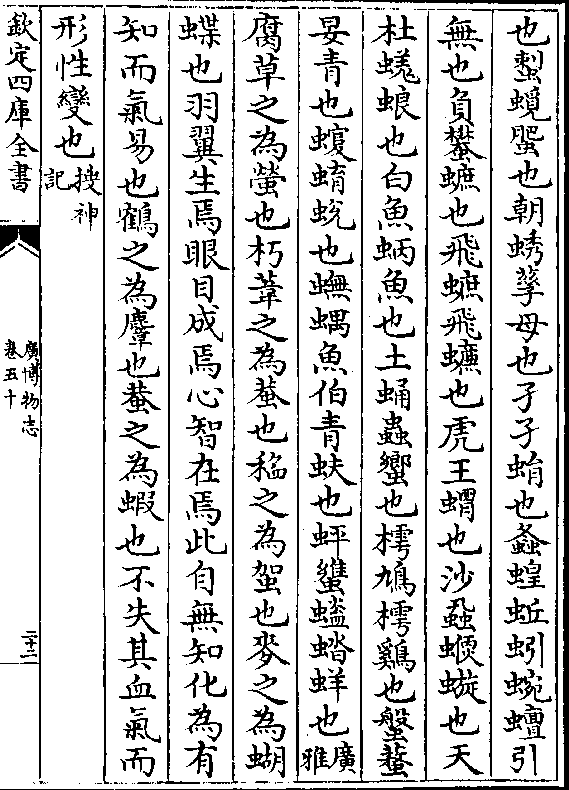 也蟿螇𧊧也朝蜏孳母也孑孑蜎也螽蝗蚯蚓蜿蟺引
無也負蠜蟅也飛蟅飛蠊也虎王蝟也沙蝨蝘蜁也天
杜蜣蜋也白魚蛃魚也土蛹蠁蟲也樗鳩樗雞也盤蝥
晏青也蠀蜟蛻也蟱蝺魚伯青蚨也蛢蟥蟒蜭蛘也廣雅
腐草之為螢也朽葦之為蛬也𥡆之為䖯也麥之為蝴
蝶也羽翼生焉眼目成焉心智在焉此自無知化為有
知而氣易也鶴之為麞也蛬之為蝦也不失其血氣而
形性變也搜神記
欽定四庫全書
廣博物志
卷五十
二十二